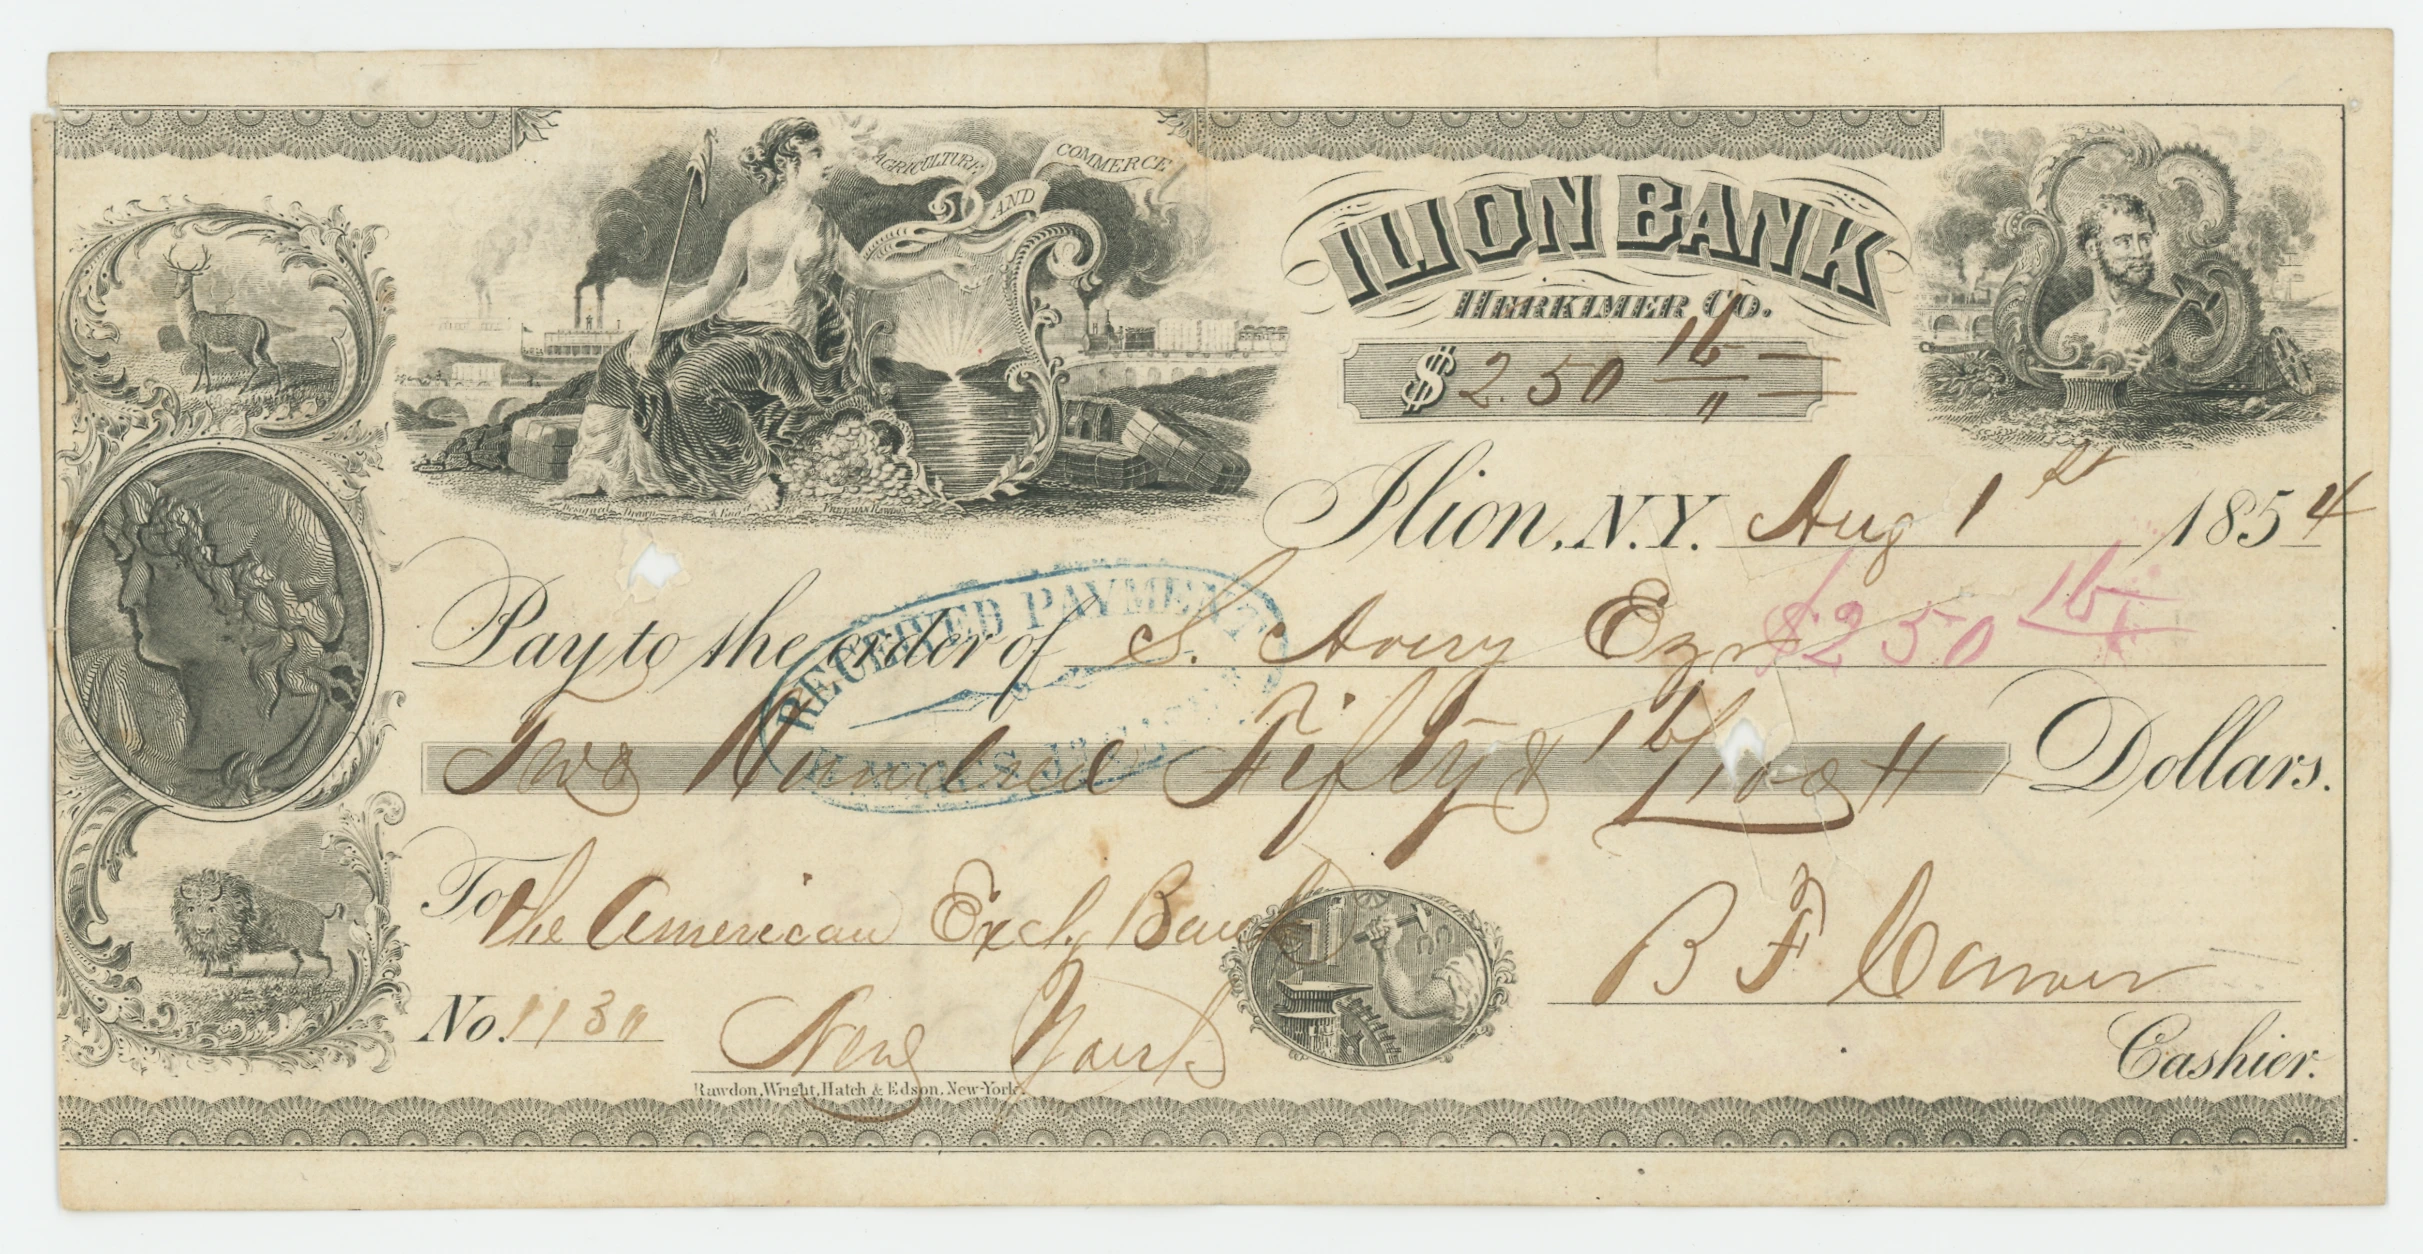 AGRICULTURE AND COMMERCE
ILION BANK
HERKIMER CO.
$ 2.50 16/"
Ilion, N.Y. Aug 1st 1854
Designed, Drawn & Eng'd by FREEMAN RAWDON
RECEIVED PAYMENT
Pay to the order of S. Avery Eqr $250 16/
Two Hundred Fifty & 16/100 Dollars.
To the American Exch. Bank
B F Carver
No. 1130 New York
Cashier.
Rawdon, Wright, Hatch & Edson, New-York.